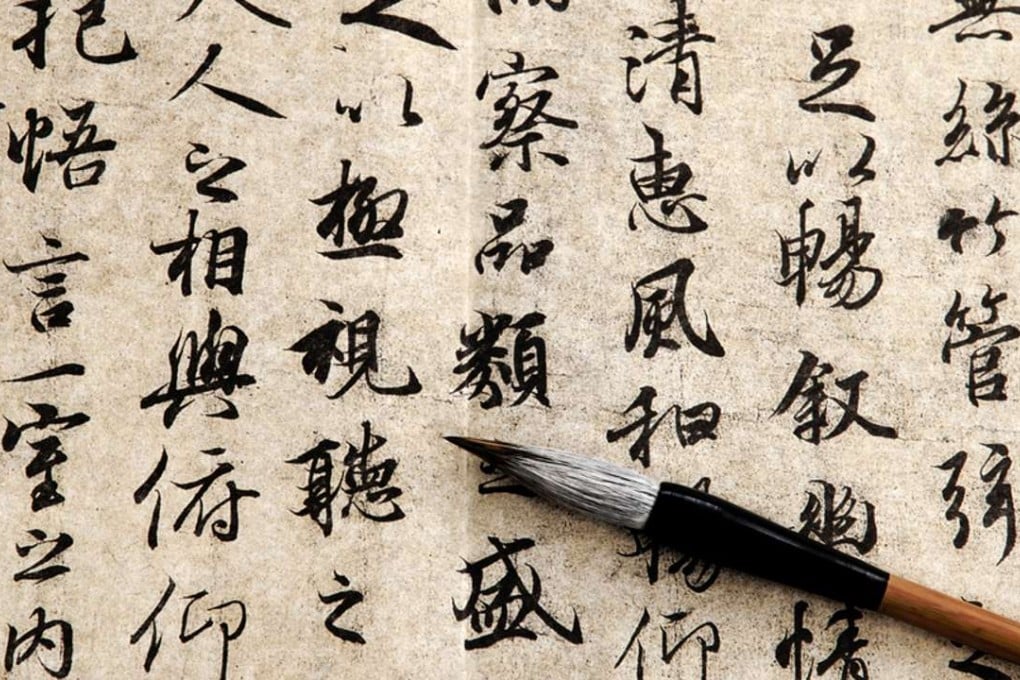 無絲竹管弦之
足以暢叙幽情
清惠風和暢仰
察品類之盛
以極視聽之
人之相與俯仰
抱悟言一室之内